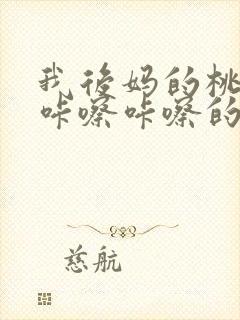 我后妈的桃
咔嚓咔嚓的
慈航